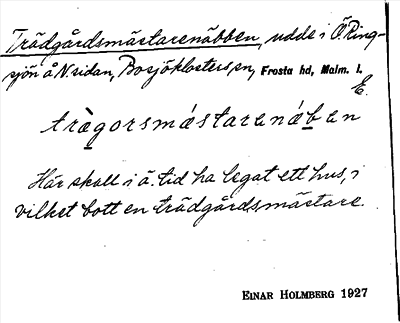 Trädgårdsmästarenäbben, udde i Ö. Ring-
sjön å N. sidan, Bosjöklosters sn, Frosta hd, Malm. l.
E.
trägorsmástaranában
Här skall i ä. tid ha legat ett hus, i
vilket bott en trädgårdsmästare.
EINAR HOLMBERG 1927